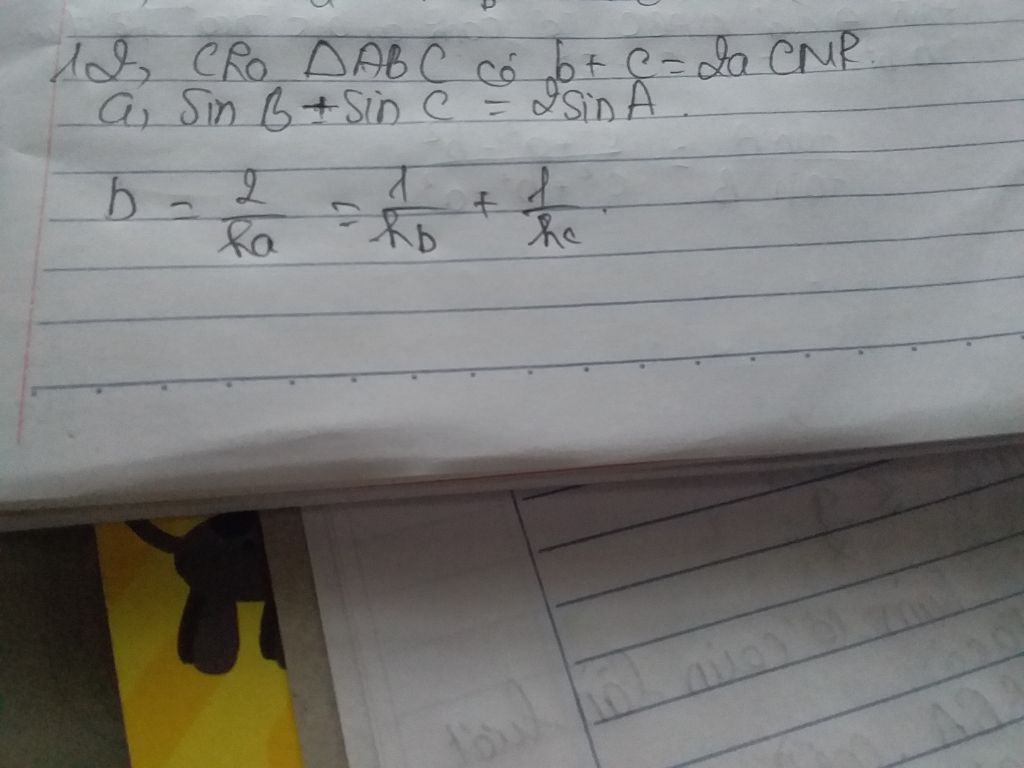 12, Cho ΔABC có b + c = 2a CMR.
a, Sin B + Sin C = 2 Sin A.
b = 2/ha = 1/hb + 1/hc.